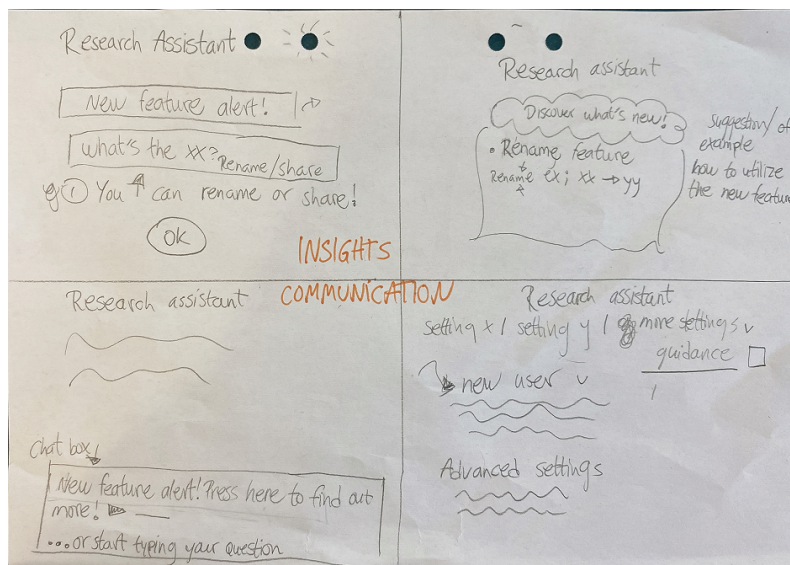 Research Assistant
New feature alert!
what's the xx? Rename/share
eg ① You can rename or share!
OK
Research assistant
Discover what's new!
• Rename feature
Rename ex; xx → yy
Suggestion/ of
example
how to utilize
the new feature
INSIGHTS
COMMUNICATION
Research assistant
Chat box
New feature alert! Press here to find out
more!
...or start typing your question
Research assistant
setting x / setting y / more settings
guidance
new user
Advanced settings